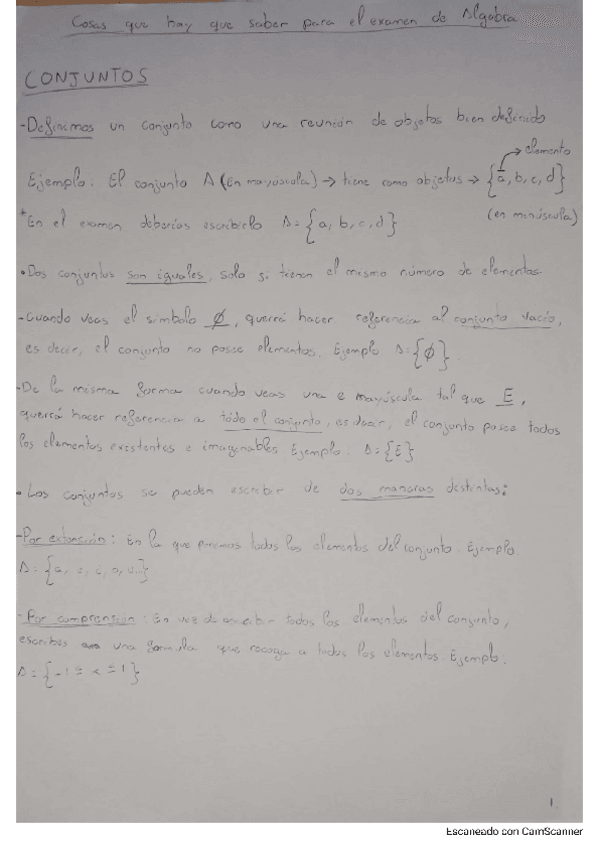 Cosas que hay que saber para el examen de Algebra
CONJUNTOS
- Definimos un conjunto como una reunión de objetos bien definido
elemento
Ejemplo: El conjunto A (En mayúscula) → tiene como objetos → {a, b, c, d}
(en minúscula)
*En el examen deberías escribirlo A = {a, b, c, d}
• Dos conjuntos son iguales, solo si tienen el mismo número de elementos.
- Cuando veas el simbolo Ø, querrá hacer referencia al conjunto vacío,
es decir, el conjunto no posee elementos. Ejemplo A = {Ø}.
- De la misma forma cuando veas una e mayúscula tal que E,
querrá hacer referencia a todo el conjunto, es decir, el conjunto posee todos
los elementos existentes e imaginables Ejemplo. A = {E}
• Los conjuntos se pueden escribir de dos maneras distintas:
- Por extensión: En la que ponemos todos los elementos del conjunto. Ejemplo.
A = {a, e, i, o, u.}
- Por comprensión: En vez de escribir todos los elementos del conjunto,
escribes una formula que recoga a todos los elementos. Ejemplo.
A = {-1 ≤ x ≤ 1}
1
Escaneado con CamScanner